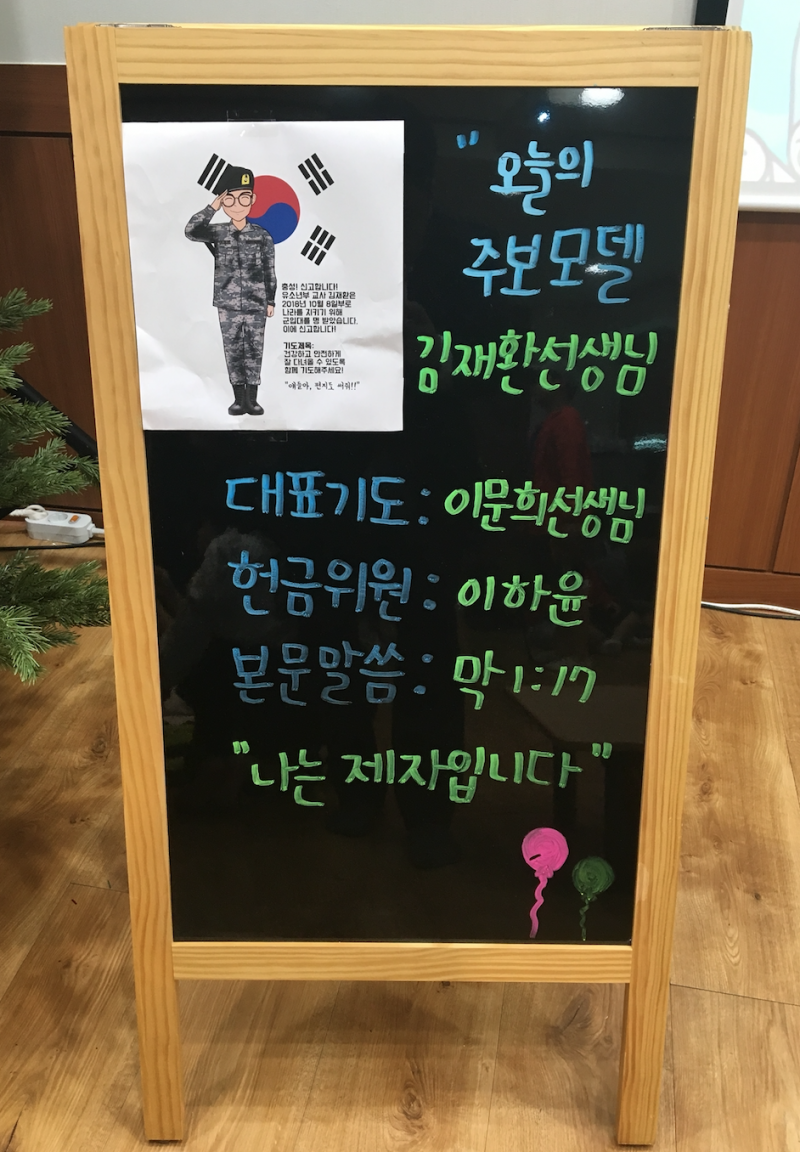 충성! 신고합니다!
유소년부 교사 김재환은
2018년 10월 8일부로
나라를 지키기 위해
군입대를 명 받았습니다.
이에 신고합니다!
기도제목:
건강하고 안전하게
잘 다녀올 수 있도록
함께 기도해주세요!
"얘들아, 편지도 써줘!!"
"오늘의
주보모델
김재환선생님
대표기도: 이문희선생님
헌금위원: 이하윤
본문말씀: 막1:17
"나는 제자입니다"